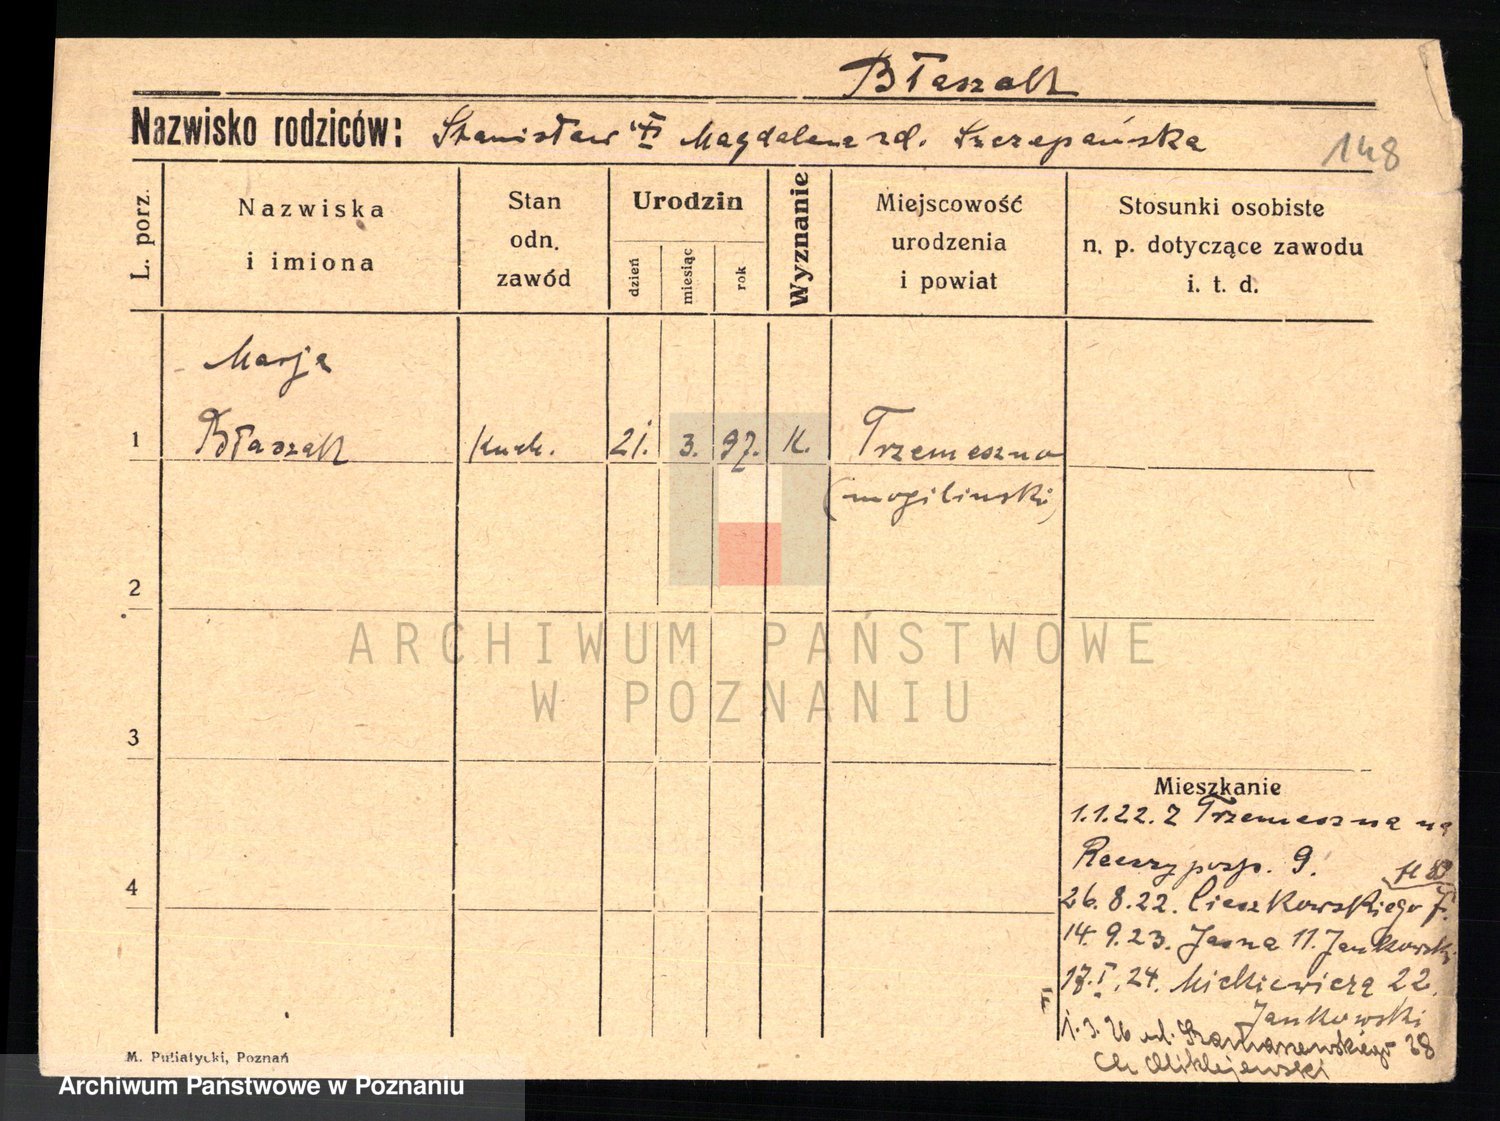 Błaszak
Nazwisko rodziców: Stanisław i Magdalena zd. Szczepańska
148
L. porz.
Nazwiska
i imiona
Stan
odn.
zawód
Urodzin
dzień
miesiąc
rok
Wyznanie
Miejscowość
urodzenia
i powiat
Stosunki osobiste
n. p. dotyczące zawodu
i. t. d.
Marja
1 Błaszak Kuch. 21. 3. 97. K. Trzemeszno
(mogilinski)
2
ARCHIWUM PAŃSTWOWE
W POZNANIU
3
Mieszkanie
1.1.22. Z Trzemeszna na
Rzeczyposp. 9.
4
26.8.22. Cieszkowskiego 7.
14.9.23. Jasna 11. Jankowski
17.I.24. Mickiewicza 22.
Jankowski
1.3.26 ul. 28
M. Putiatycki, Poznań
Archiwum Państwowe w Poznaniu